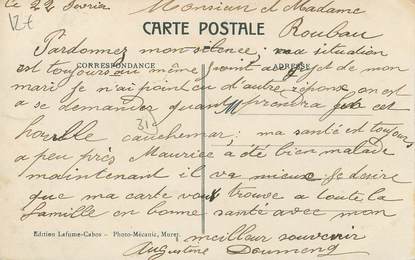 Le 22 Février Monsieur et Madame
12f
CARTE POSTALE
Roubau
Pardonnez mon silence; ma situation
CORRESPONDANCE ADRESSE
est toujours au même point a sujet de mon
mari je n'ai point eu d'autre réponse on est
a se demander quand prendra fin cet
horrible cauchemar; ma santé est toujours
31
a peu près Maurice a été bien malade
maintenant il va mieux. Je desire
que ma carte vous trouve a toute la
famille en bonne santé avec mon
Edition Lafume-Cabos - Photo-Mécanic, Muret.
meilleur souvenir
Augustine Doumeng